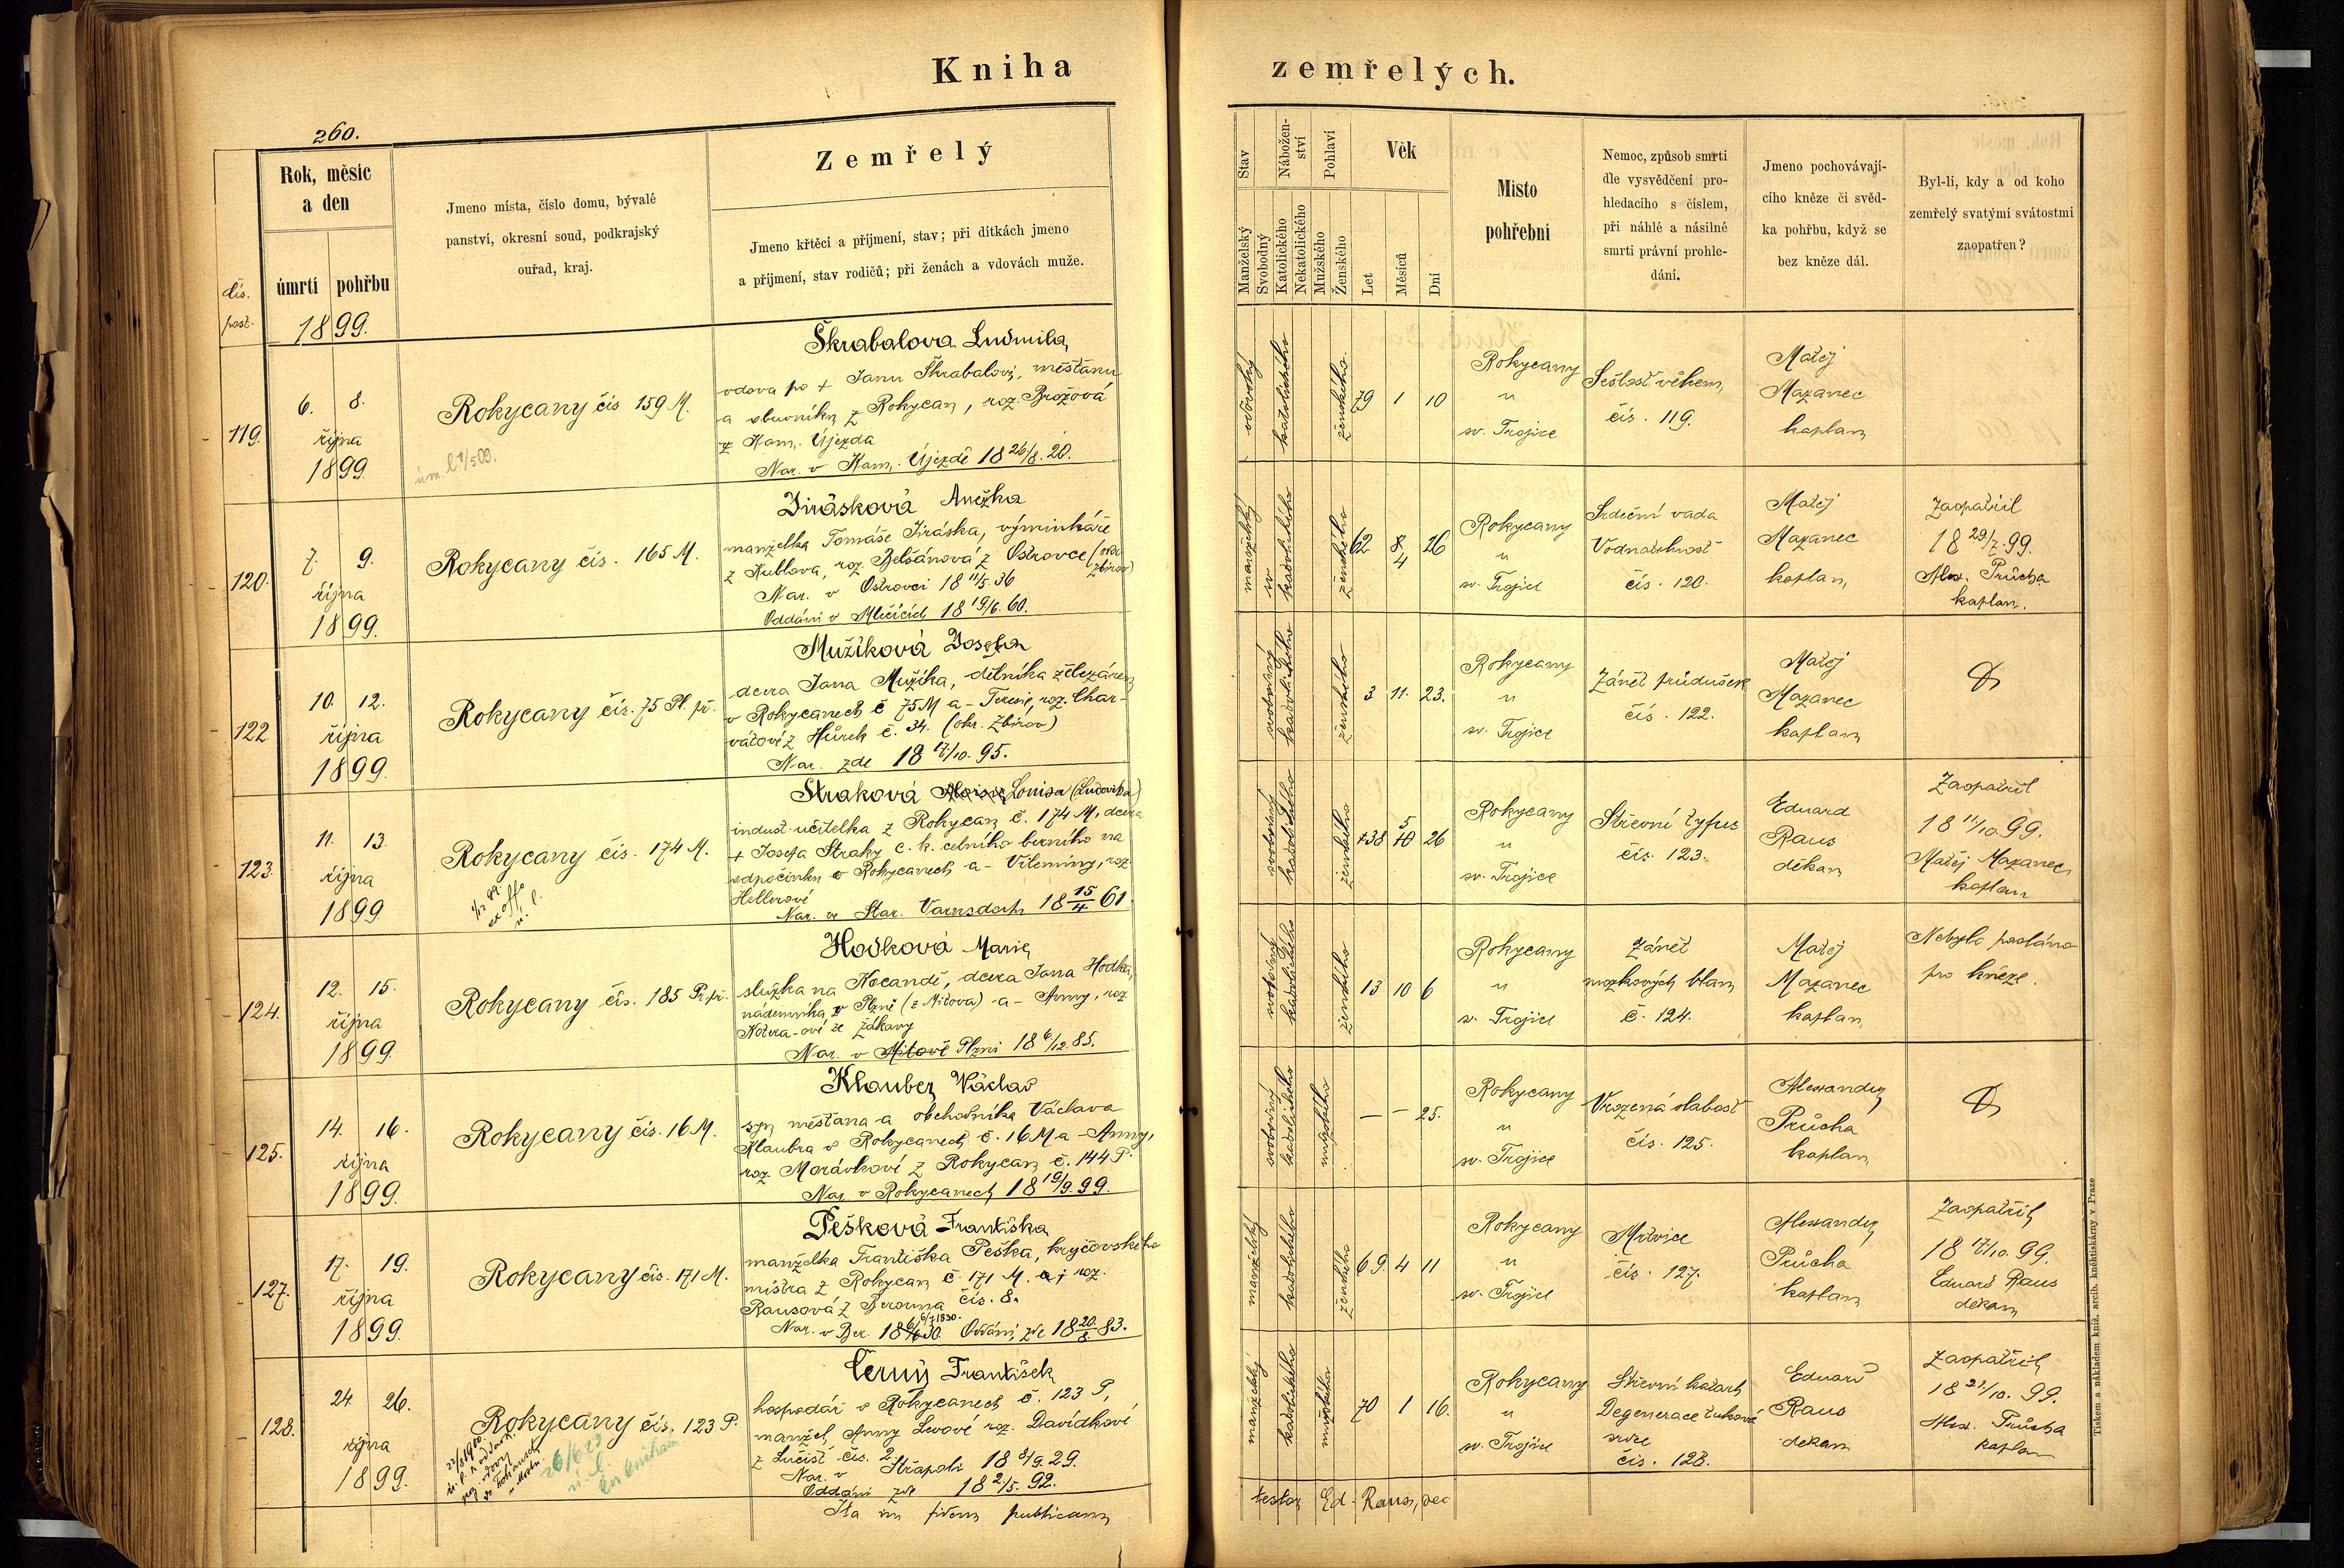 Kniha
zemřelých.
260.
Rok, měsíc
a den
úmrtí
pohřbu
čís.
post.
1899.
Jmeno místa, číslo domu, bývalé
panství, okresní soud, podkrajský
ouřad, kraj.
Zemřelý
Jmeno křtěcí a příjmení, stav; při dítkách jmeno
a příjmení, stav rodičů; při ženách a vdovách muže.
Stav
Manželský
Svobodný
Nábožen-
ství
Katolického
Nekatolického
Pohlaví
Mužského
Ženského
Věk
Let
Měsíců
Dní
Místo
pohřební
Nemoc, způsob smrti
dle vysvědčení pro-
hledacího s číslem,
při náhlé a násilné
smrti právní prohle-
dání.
Jmeno pochovávají-
cího kněze či svěd-
ka pohřbu, když se
bez kněze dál.
Byl-li, kdy a od koho
zemřelý svatými svátostmi
zaopatřen?
119.
6. 8.
října
1899.
Rokycany čís 159 M.
Škrabalova Ludmila,
vdova po + Janu Škrabalovi, měšťanu
a obuvníku z Rokycan, roz. Brožová
z Kam. Újezda
Nar. v Kam. Újezdě 18 26/8. 20.
vdovský
katolického
ženského.
79 1 10
Rokycany
u
sv. Trojice
Sešlost věkem,
čís. 119.
Matěj
Mazanec
kaplan
120.
7. 9.
října
1899.
Rokycany čís. 165 M.
Jirásková Anežka
manželka Tomáše Jiráska, výminkáře
z Kublova, roz. Belšánová z Ostrovce (okr.
Zbirov)
Nar. v Ostrovci 18 11/5 36
Oddáni v Mlečicích 18 19/6. 60.
manželský
katolického
ženského
62 8 26
4
Rokycany
u
sv. Trojice
Srdeční vada
Vodnatelnost
čís. 120.
Matěj
Mazanec
kaplan,
Zaopatřil
18 29/7. 99.
Alex. Průcha
kaplan.
122
10. 12.
října
1899.
Rokycany čís. 75 Pl. př.
Mužíková Josefa
dcera Jana Mužíka, dělníka v železárně
v Rokycanech č 75 M a Terezie, roz. Char-
vátové z Hůrek č. 34. (okr. Zbirov)
Nar. zde 18 17/10. 95.
svobodný
katolického
ženského
3 11. 23.
Rokycany
u
sv. Trojice
Zánět průdušek
čís. 122.
Matěj
Mazanec
kaplan
123.
11. 13.
října
1899
Rokycany čís. 174 M.
ex offo
Straková Aloisie Louisa (Ludovika)
indust. učitelka z Rokycan č. 174 M, dcera
+ Josefa Straky c. k. celního berního na
odpočinku v Rokycanech a Vilemíny, roz
Hellerové
Nar. ve Star. Varnsdorfu 18 15/4. 61.
svobodný
katolického
ženského
38 5 26
Rokycany
u
sv. Trojice
Střevní tyfus
čís. 123.
Eduard
Raus
děkan
Zaopatřil
18 11/10. 99.
Matěj Mazanec
kaplan
124.
12. 15.
října
1899.
Rokycany čís. 185 Pr. př.
Hodková Marie
služka na Kocandě, dcera Jana Hodka,
nádeníka v Plzni (z Mitova) a Anny, roz
Kotera-ové ze Ždkavy
Nar. v Mitově Plzni 18 6/12. 85.
svobodný
katolického
ženského
13 10 6
Rokycany
u
s. Trojice
Zánět
mozkových blan
č. 124.
Matěj
Mazanec
kaplan
Nebylo posláno
pro kněze.
125.
14. 16.
října
1899.
Rokycany čís. 16 M.
Klauber Václav
syn měšťana a obchodníka Václava
Klaubra v Rokycanech č. 16 M a Anny,
roz Morávkové z Rokycan č. 144 P.
Nar. v Rokycanech 18 19/9. 99.
svobodný
katolického
mužského
— — 25.
Rokycany
u
sv. Trojice
Vrozená slabost
čís. 125.
Alexander
Průcha
kaplan
127.
17. 19.
října
1899.
Rokycany čís. 171 M.
Pešková Františka
manželka Františka Peška, krejčovského
mistra z Rokycan č. 171 M. roz.
Rausová z Berouna čís. 8.
6/7 1830.
Nar. v Ber. 18 30. Oddáni zde 18 20/8. 83.
manželský
katolického
ženského
69. 4 11
Rokycany
u
sv. Trojice
Mrtvice
čís. 127.
Alexander
Průcha
kaplan
Zaopatřil
18 17/10. 99.
Eduard Raus
děkan
128.
24 26.
října
1899.
Rokycany čís. 123 P.
26/6 23
Černý František
hospodář v Rokycanech č. 123 P,
manžel Anny Levové roz. Davídkové
z Lučišť čís. 2
Nar. v Střapoli 18 8/9. 29.
Oddáni zde 18 2/5. 92.
manželský
katolického
mužského
70 1 16.
Rokycany
u
sv. Trojice
Střevní katarh
Degenerace tuková
srdce
čís. 128.
Eduard
Raus
děkan
Zaopatřil
18 21/10. 99.
Alex. Průcha
kaplan
Ita in fidem publicam
testor Ed. Raus, dec
Tiskem a nákladem kníž. arcib. knihtiskárny v Praze